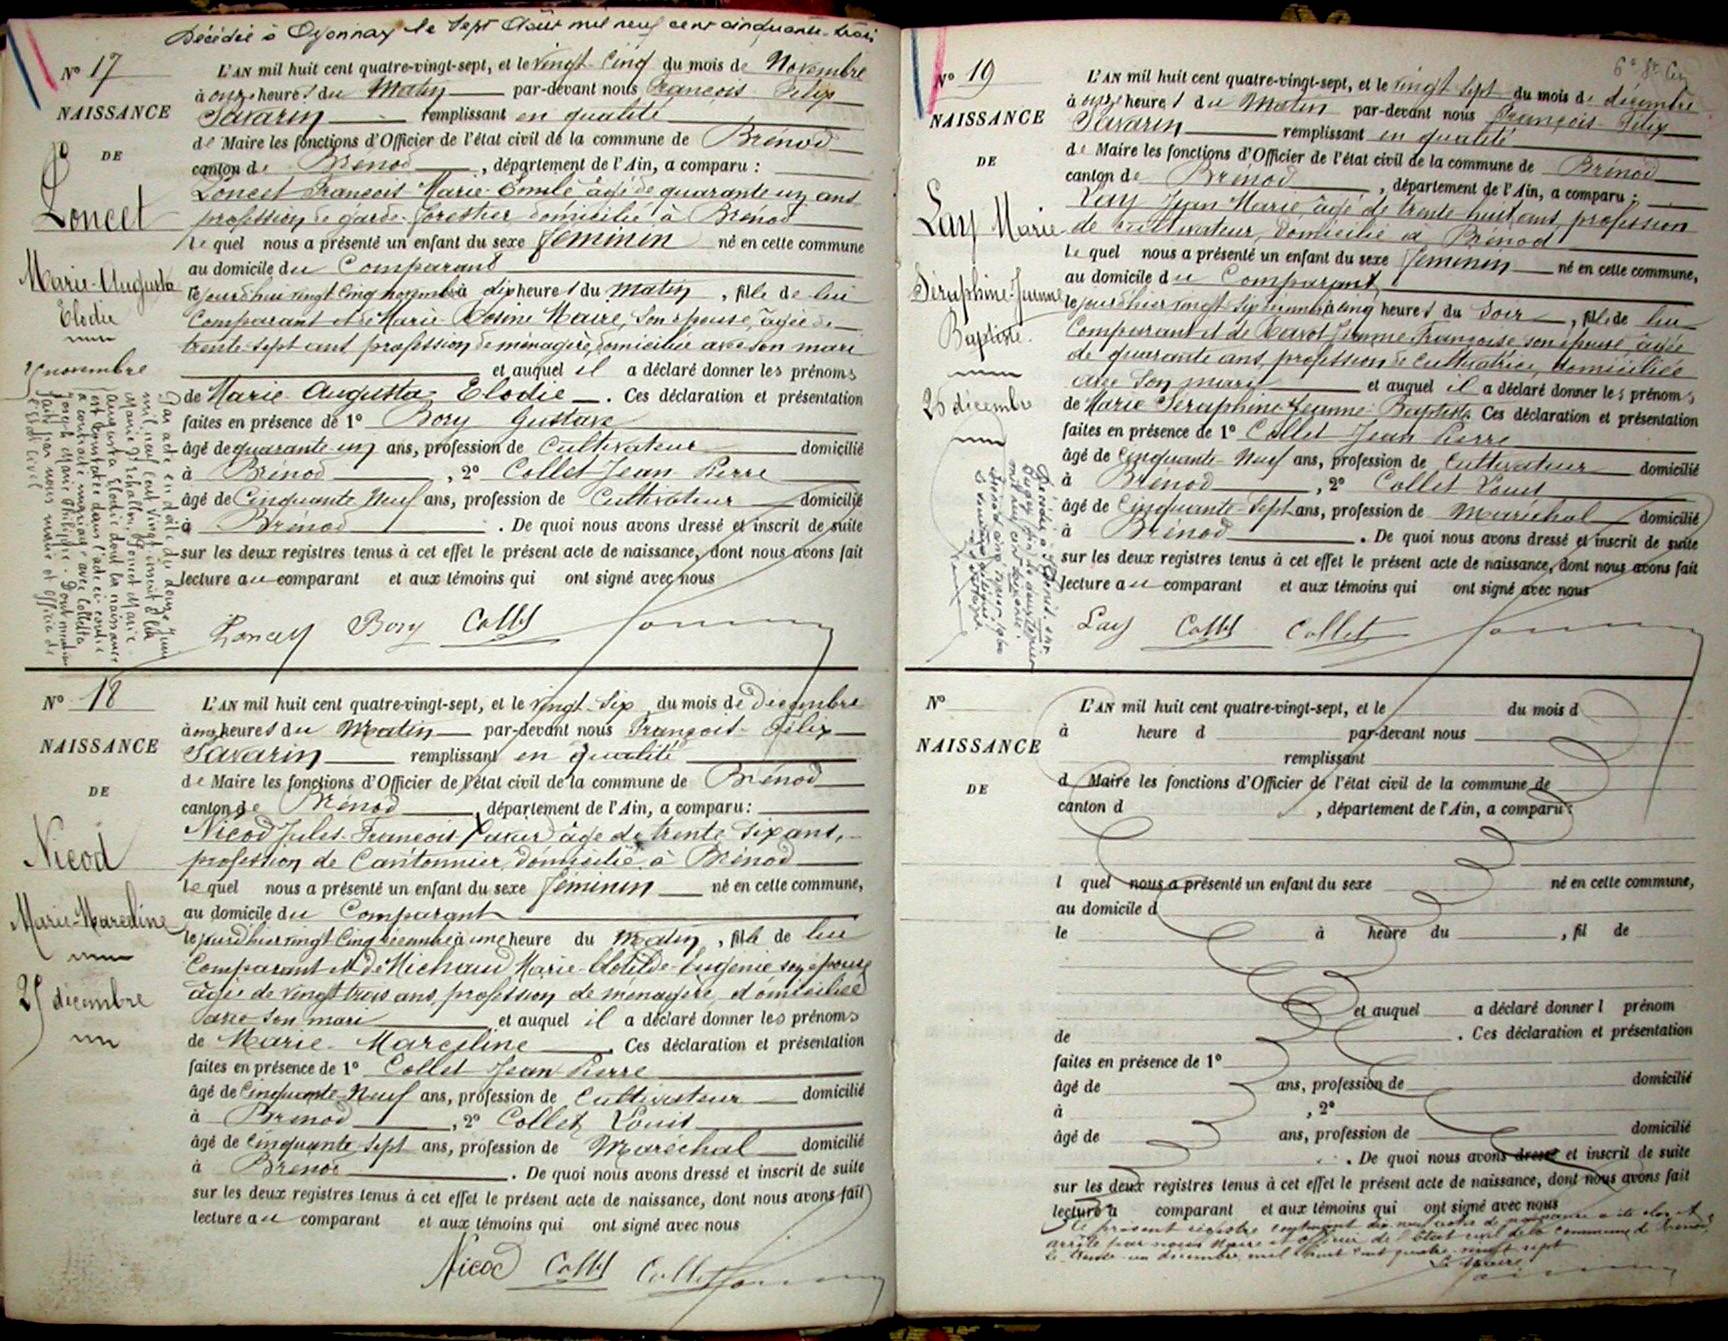 Décédée à Oyonnax le sept Août mil neuf cent cinquante-trois
N° 17
NAISSANCE
DE
Loncet
Marie-Augusta
Elodie
25 novembre
L'AN mil huit cent quatre-vingt-sept, et le vingt-cinq du mois de Novembre
à onze heures du Matin par-devant nous François Félix
Savarin remplissant en qualité
de Maire les fonctions d'Officier de l'état civil de la commune de Brénod
canton de Brénod, département de l'Ain, a comparu :
Loncet François Marie Emile âgé de quarante un ans
profession de garde-forestier domicilié à Brénod
lequel nous a présenté un enfant du sexe féminin né en cette commune
au domicile du Comparant
lejourd'hui vingt cinq novembre à dix heures du matin, fille de lui
Comparant et de Marie Rosine Maire, son épouse, âgée de
trente-sept ans profession de ménagère, domiciliée avec son mari
et auquel il a déclaré donner les prénoms
de Marie Augusta Elodie. Ces déclaration et présentation
faites en présence de 1° Bory Gustave
âgé de quarante un ans, profession de cultivateur domicilié
à Brénod, 2° Collet Jean Pierre
âgé de Cinquante Neuf ans, profession de Cultivateur domicilié
à Brénod. De quoi nous avons dressé et inscrit de suite
sur les deux registres tenus à cet effet le présent acte de naissance, dont nous avons fait
lecture au comparant et aux témoins qui ont signé avec nous
Par acte en date du douze Juin
mil neuf cent vingt inscrit à la
Mairie d'Echallon, Loncet Marie
Augusta Elodie dont la naissance
est constatée dans l'acte ci-contre
a contracté mariage avec Colletta
Joseph Marie Philippe. Dont mention
faite par nous maire et officier de
l'Etat civil
Loncet Bory Collet
N° 18
NAISSANCE
DE
Nicod
Marie-Marceline
25 décembre
L'AN mil huit cent quatre-vingt-sept, et le vingt-six du mois de décembre
à onze heures du Matin par-devant nous François-Félix
Savarin remplissant en qualité
de Maire les fonctions d'Officier de l'état civil de la commune de Brénod
canton de Brénod, département de l'Ain, a comparu :
Nicod Jules-François âgé de trente six ans,
profession de Cantonnier domicilié à Brénod
lequel nous a présenté un enfant du sexe féminin né en cette commune,
au domicile du Comparant
lejourd'hier vingt cinq décembre à une heure du matin, fille de lui
Comparant et de Michaud Marie-Clotilde-Eugénie son épouse
âgée de vingt trois ans, profession de ménagère, domiciliée
avec son mari et auquel il a déclaré donner les prénoms
de Marie-Marceline. Ces déclaration et présentation
faites en présence de 1° Collet Jean Pierre
âgé de Cinquante-Neuf ans, profession de Cultivateur domicilié
à Brénod, 2° Collet Louis
âgé de Cinquante sept ans, profession de Maréchal domicilié
à Brénod. De quoi nous avons dressé et inscrit de suite
sur les deux registres tenus à cet effet le présent acte de naissance, dont nous avons fait
lecture au comparant et aux témoins qui ont signé avec nous
Nicod Collet Collet
N° 19
NAISSANCE
DE
Lay Marie
Séraphine-Jeanne
Baptiste
26 décembre
L'AN mil huit cent quatre-vingt-sept, et le vingt sept du mois de décembre
à onze heures du Matin par-devant nous François-Félix
Savarin remplissant en qualité
de Maire les fonctions d'Officier de l'état civil de la commune de Brénod
canton de Brénod, département de l'Ain, a comparu :
Lay Jean Marie âgé de trente huit ans, profession
de cultivateur, domicilié à Brénod
lequel nous a présenté un enfant du sexe féminin né en cette commune,
au domicile du Comparant
lejourd'hier vingt six décembre à cinq heures du Soir, fille de lui
Comparant et de Jeanne Françoise son épouse âgée
de quarante ans, profession de Cultivatrice, domiciliée
avec son mari et auquel il a déclaré donner les prénoms
de Marie Séraphine Jeanne Baptiste. Ces déclaration et présentation
faites en présence de 1° Collet Jean Pierre
âgé de Cinquante-Neuf ans, profession de Cultivateur domicilié
à Brénod, 2° Collet Louis
âgé de Cinquante-Sept ans, profession de Maréchal domicilié
à Brénod. De quoi nous avons dressé et inscrit de suite
sur les deux registres tenus à cet effet le présent acte de naissance, dont nous avons fait
lecture au comparant et aux témoins qui ont signé avec nous
Lay Collet Collet
N°
NAISSANCE
DE
L'AN mil huit cent quatre-vingt-sept, et le du mois d
à heure d par-devant nous
remplissant
d Maire les fonctions d'Officier de l'état civil de la commune de
canton d , département de l'Ain, a comparu :
l quel nous a présenté un enfant du sexe né en cette commune,
au domicile d
le à heure du , fil de
et auquel a déclaré donner l prénom
de . Ces déclaration et présentation
faites en présence de 1°
âgé de ans, profession de domicilié
à , 2°
âgé de ans, profession de domicilié
. De quoi nous avons dressé et inscrit de suite
sur les deux registres tenus à cet effet le présent acte de naissance, dont nous avons fait
lecture a comparant et aux témoins qui ont signé avec nous
Le présent registre contenant dix neuf actes de naissance a été clos et
arrêté par nous Maire et officier de l'Etat civil de la commune de Brénod
le trente-un décembre mil huit cent quatre-vingt sept
Le Maire